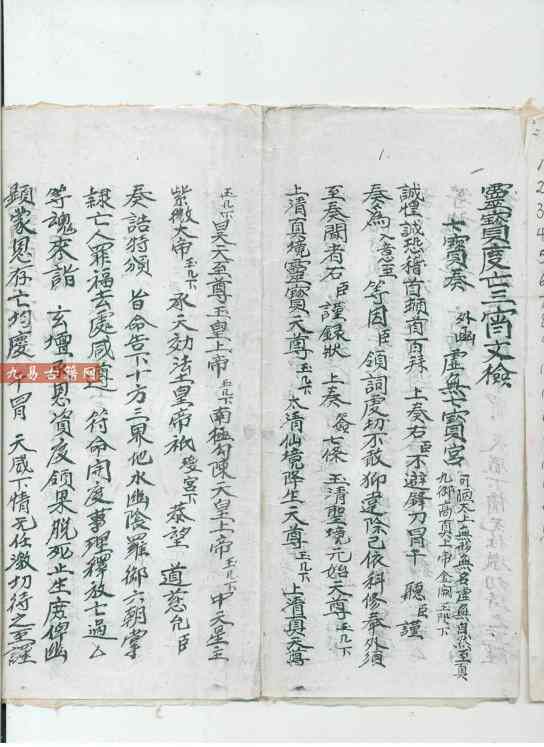 靈寶度亡三宵文檢
七寶奏 外函 虛無七寶宮 可回天上無形無名虛無自然至真九御高真上帝金闕玉陛下
誠惶誠恐稽首頓首百拜 上奏右臣不避鋒刀冒干 聽臣謹
奏為 入意至 等因臣領詞虔切不敢抑違除已依科修奉外須
至奏聞者右臣謹錄狀 上奏 僉七條 玉清聖境元始天尊玉几下
上清真境靈寶天尊玉几下 太清仙境降生天尊玉几下 上清真天尊
玉几下 昊天至尊玉皇上帝玉几下 南極勾陳天皇上帝玉几下 中天星主
紫微大帝玉几下 承天効法土皇帝祇 後宮下 恭望 道慈允臣
奏誥特頒 旨命告下十方三界地水幽陰羅鄉六朝掌
隸亡人罪福去處咸遵 符命開度事理釋放亡過厶
等魂來詣 玄壇 恩資度領果脫死生度俾幽
顯蒙恩存亡均慶 冒 天威下情无任激切待之至謹
九易古籍网
1
2
3
4
5
6